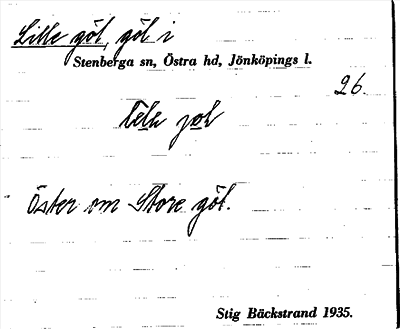 Lille göl, göl i
Stenberga sn, Östra hd, Jönköpings l.
26.
öster om Store göl.
Stig Bäckstrand 1935.